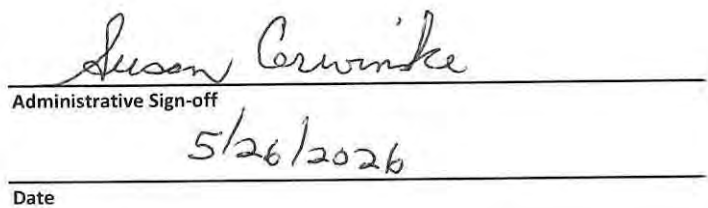 Susan Corwinske
Administrative Sign-off
5/26/2026
Date